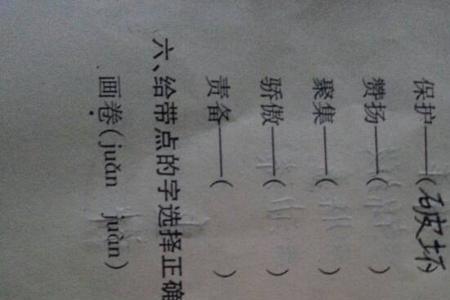 保护——(破坏
赞扬——( )
聚集——( )
骄傲——( )
责备——( )
六、给带点的字选择正确
画卷(juǎn juàn)